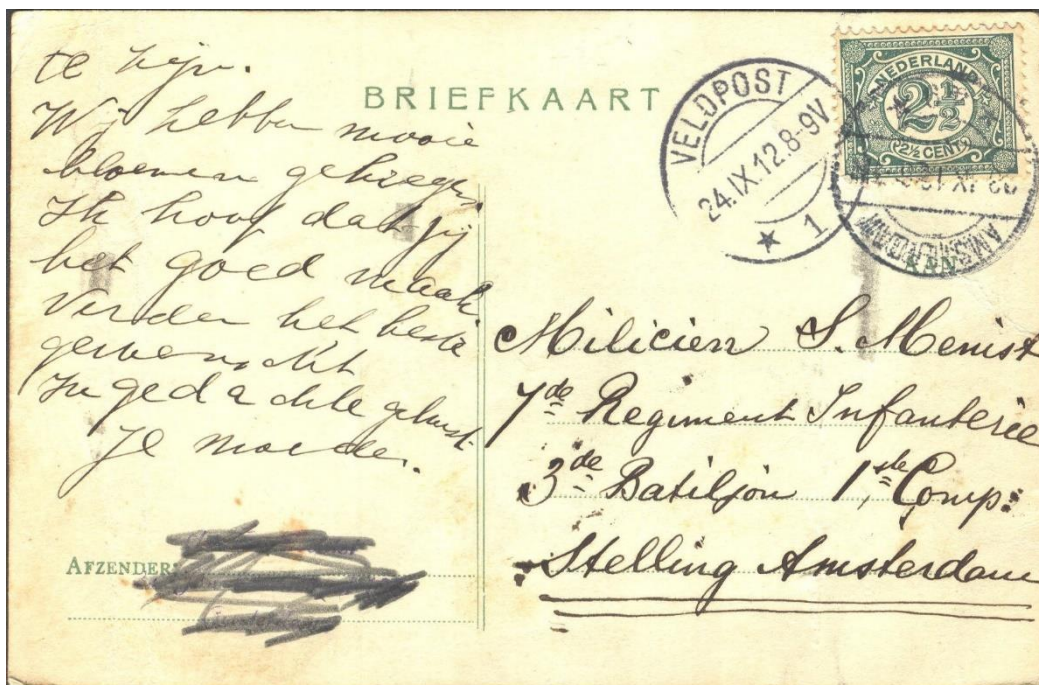 te zijn.
Wij hebben mooie
bloemen gekregen
Ik hoop dat jij
het goed maakt.
Verder het beste
gewenscht
In gedachte gekust
Je moeder.
BRIEFKAART
VELDPOST
24.IX.12.8-9V
1
NEDERLAND
2½
2½ CENT
AMSTERDAM
Milicien S. Menist
7de Regiment Infanterie
3de Bataljon 1ste Comp:
Stelling Amsterdam
AFZENDER: